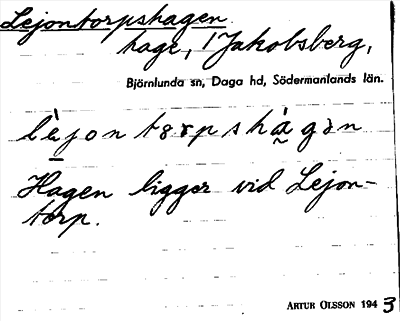 Lejontorpshagen
hage, / Jakobsberg,
Björnlunda sn, Daga hd, Södermanlands län.
lèjontorpshágən
Hagen ligger vid Lejon-
torp.
ARTUR OLSSON 1943